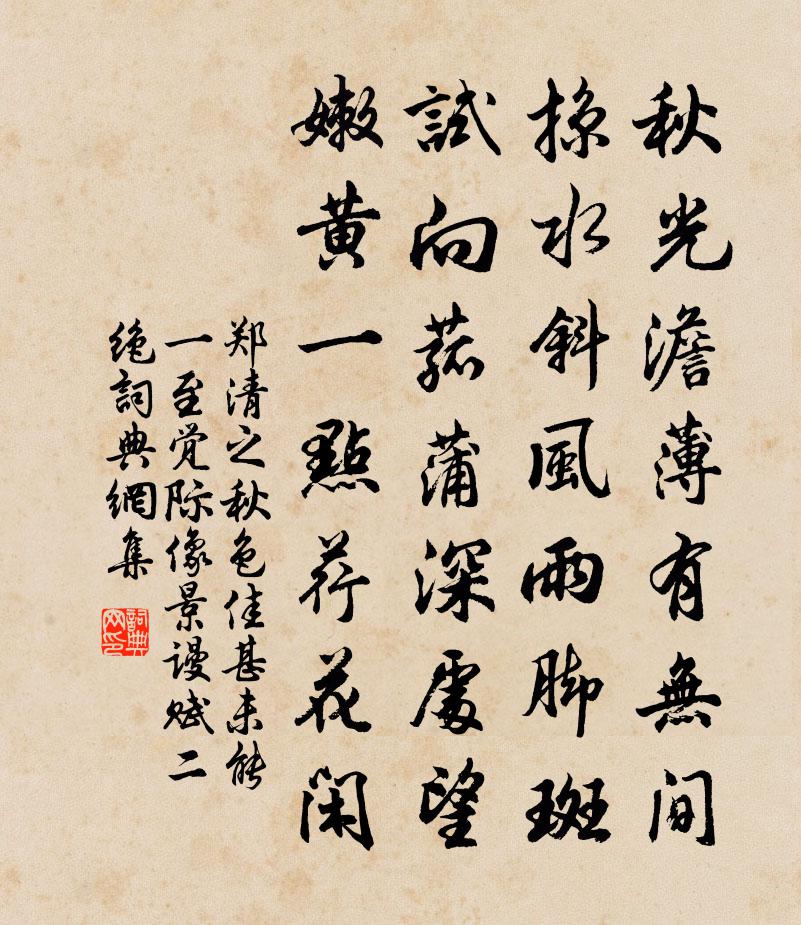 秋光澹薄有無間
掠水斜風雨脚斑
試向菰蒲深處望
嫩黄一點荷花閑
郑清之秋色佳甚未能
一至觉际像景谩赋二
绝詞典網集
詞典网印